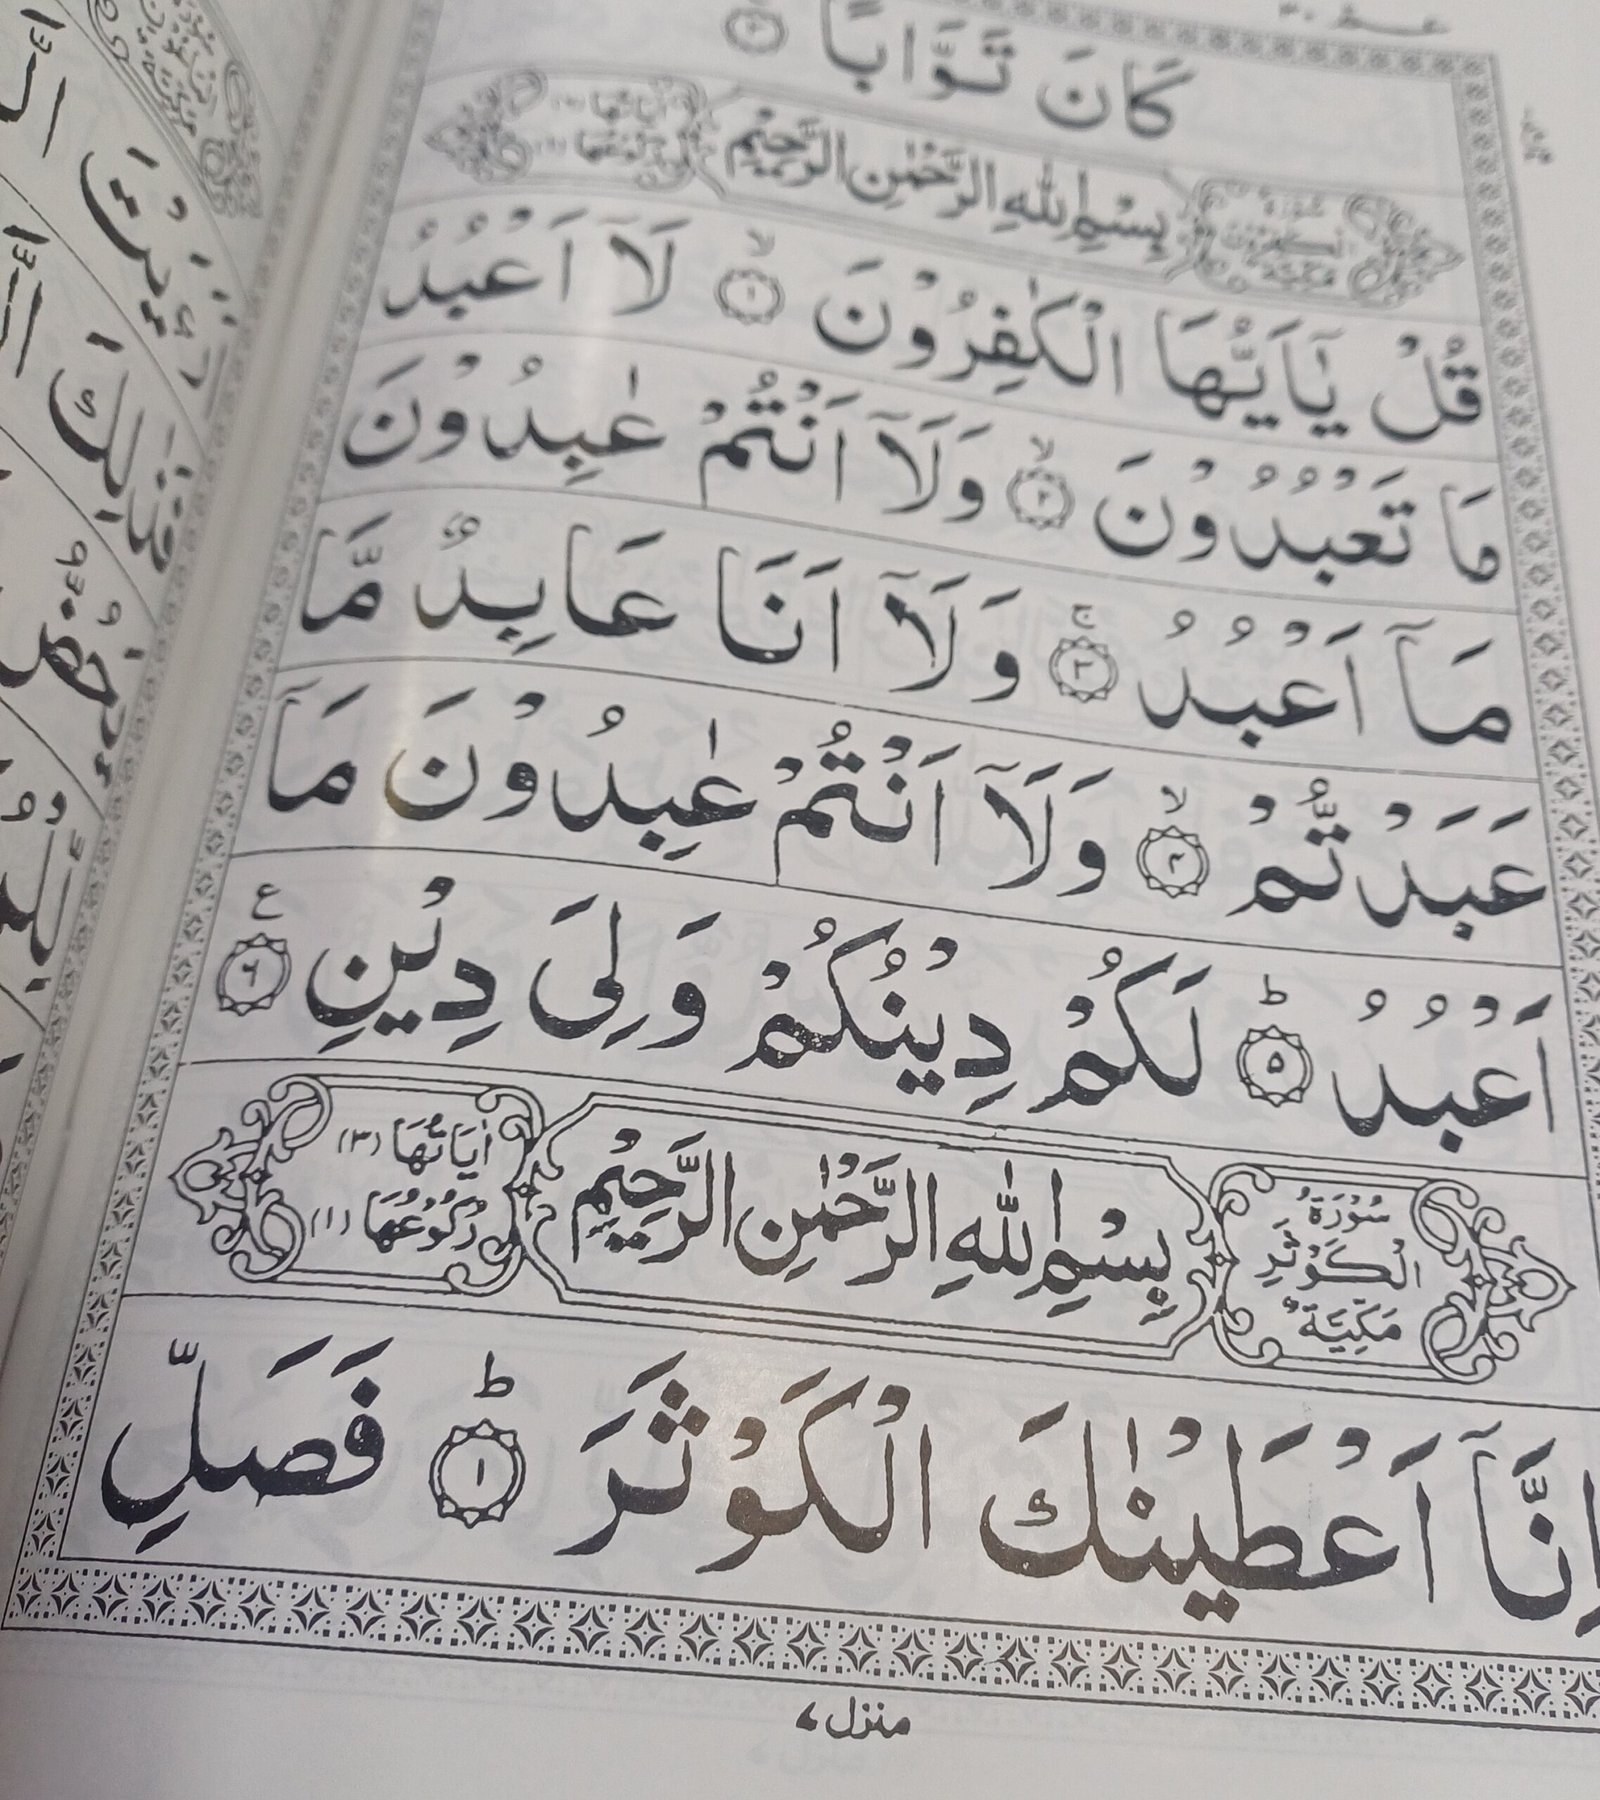 كَانَ تَوَّابًا ۳
سُوْرَةُ الْكٰفِرُوْنَ مَكِّيَّةٌ
بِسْمِ اللّٰهِ الرَّحْمٰنِ الرَّحِيْمِ
قُلْ يٰٓاَيُّهَا الْكٰفِرُوْنَ ۙ۱ لَآ اَعْبُدُ
مَا تَعْبُدُوْنَ ۙ۲ وَلَآ اَنْتُمْ عٰبِدُوْنَ
مَآ اَعْبُدُ ۚ۳ وَلَآ اَنَا عَابِدٌ مَّا
عَبَدْتُّمْ ۙ۴ وَلَآ اَنْتُمْ عٰبِدُوْنَ مَآ
اَعْبُدُ ؕ۵ لَكُمْ دِيْنُكُمْ وَلِيَ دِيْنِ ۶ ع
سُوْرَةُ الْكَوْثَرِ مَكِّيَّةٌ
بِسْمِ اللّٰهِ الرَّحْمٰنِ الرَّحِيْمِ
اٰيَاتُهَا (۳)
رُكُوْعُهَا (۱)
اِنَّآ اَعْطَيْنٰكَ الْكَوْثَرَ ؕ۱ فَصَلِّ
منزل ۷